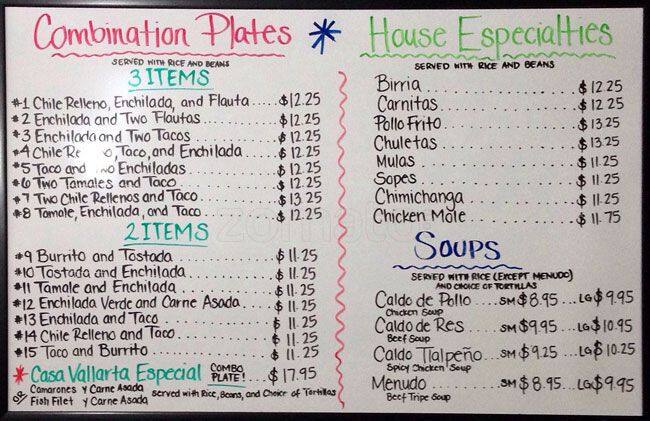 Combination Plates
SERVED WITH RICE AND BEANS
3 ITEMS
#1 Chile Relleno, Enchilada, and Flauta....$12.25
#2 Enchilada and Two Flautas.........$12.25
#3 Enchilada and Two Tacos..........$12.25
#4 Chile Re no, Taco, and Enchilada....$12.25
#5 Taco and Enchiladas..........$12.25
#6 Two Tamales and Taco..........$12.25
#7 Two Chile Rellenos and Taco......$13.25
#8 Tamale, Enchilada, and Taco......$12.25
2 ITEMS
#9 Burrito and Tostada..........$11.25
#10 Tostada and Enchilada.........$11.25
#11 Tamale and Enchilada.........$11.25
#12 Enchilada Verde and Carne Asada...$11.25
#13 Enchilada and Taco..........$11.25
#14 Chile Relleno and Taco.........$11.25
#15 Taco and Burrito..........$11.25
* Casa Vallarta Especial COMBO PLATE!...$17.95
Camarones y Carne Asada
OR Fish Filet y Carne Asada served with Rice, Beans, and Choice of Tortillas
* House Especialties
SERVED WITH RICE AND BEANS
Birria..............$12.25
Carnitas............$12.25
Pollo Frito..........$13.25
Chuletas............$13.25
Mulas..............$11.25
Sopes..............$11.25
Chimichanga........$11.25
Chicken Mole........$11.75
SOUPS
SERVED WITH RICE (EXCEPT MENUDO)
AND CHOICE OF TORTILLAS
Caldo de Pollo....SM $8.95...LG $9.95
Chicken Soup
Caldo de Res....SM $9.95...LG $10.95
Beef Soup
Caldo Tlalpeño...SM $9.25...LG $10.25
Spicy Chicken Soup
Menudo........SM $8.95...LG $9.95
Beef Tripe Soup
zomato